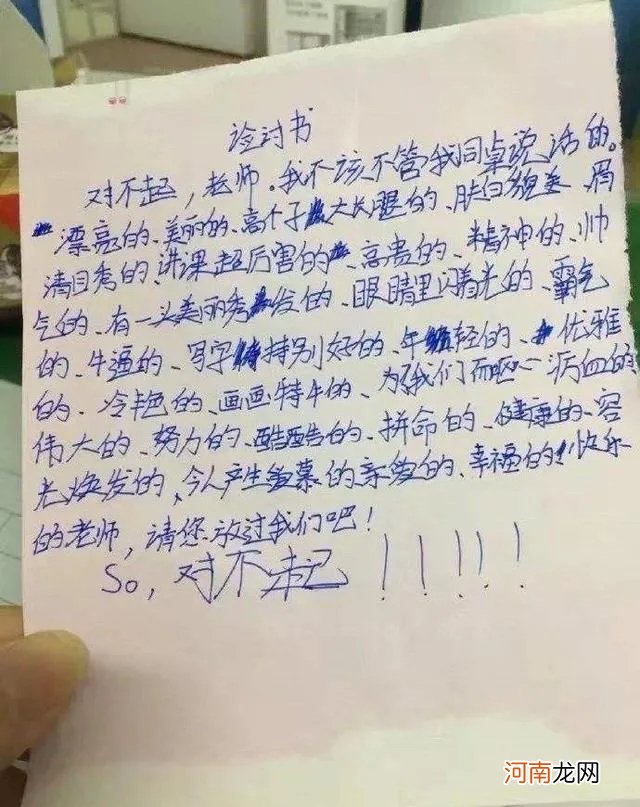 检讨书
对不起，老师。我不该不管我同桌说话的。
漂亮的、美丽的、高个子大长腿的、肤白貌美、眉
清目秀的、讲课超厉害的、高贵的、精神的、帅
气的、有一头美丽秀发的、眼睛里闪着光的、霸气
的、牛逼的、写字特别好的、年轻的、优雅
的、冷艳的、画画特牛的、为了我们而呕心沥血的
伟大的、努力的、酷酷的、拼命的、健康的、容
光焕发的、令人产生羡慕的亲爱的、幸福的、快乐
的老师，请您放过我们吧！
So，对不起！！！！！
河南龙网